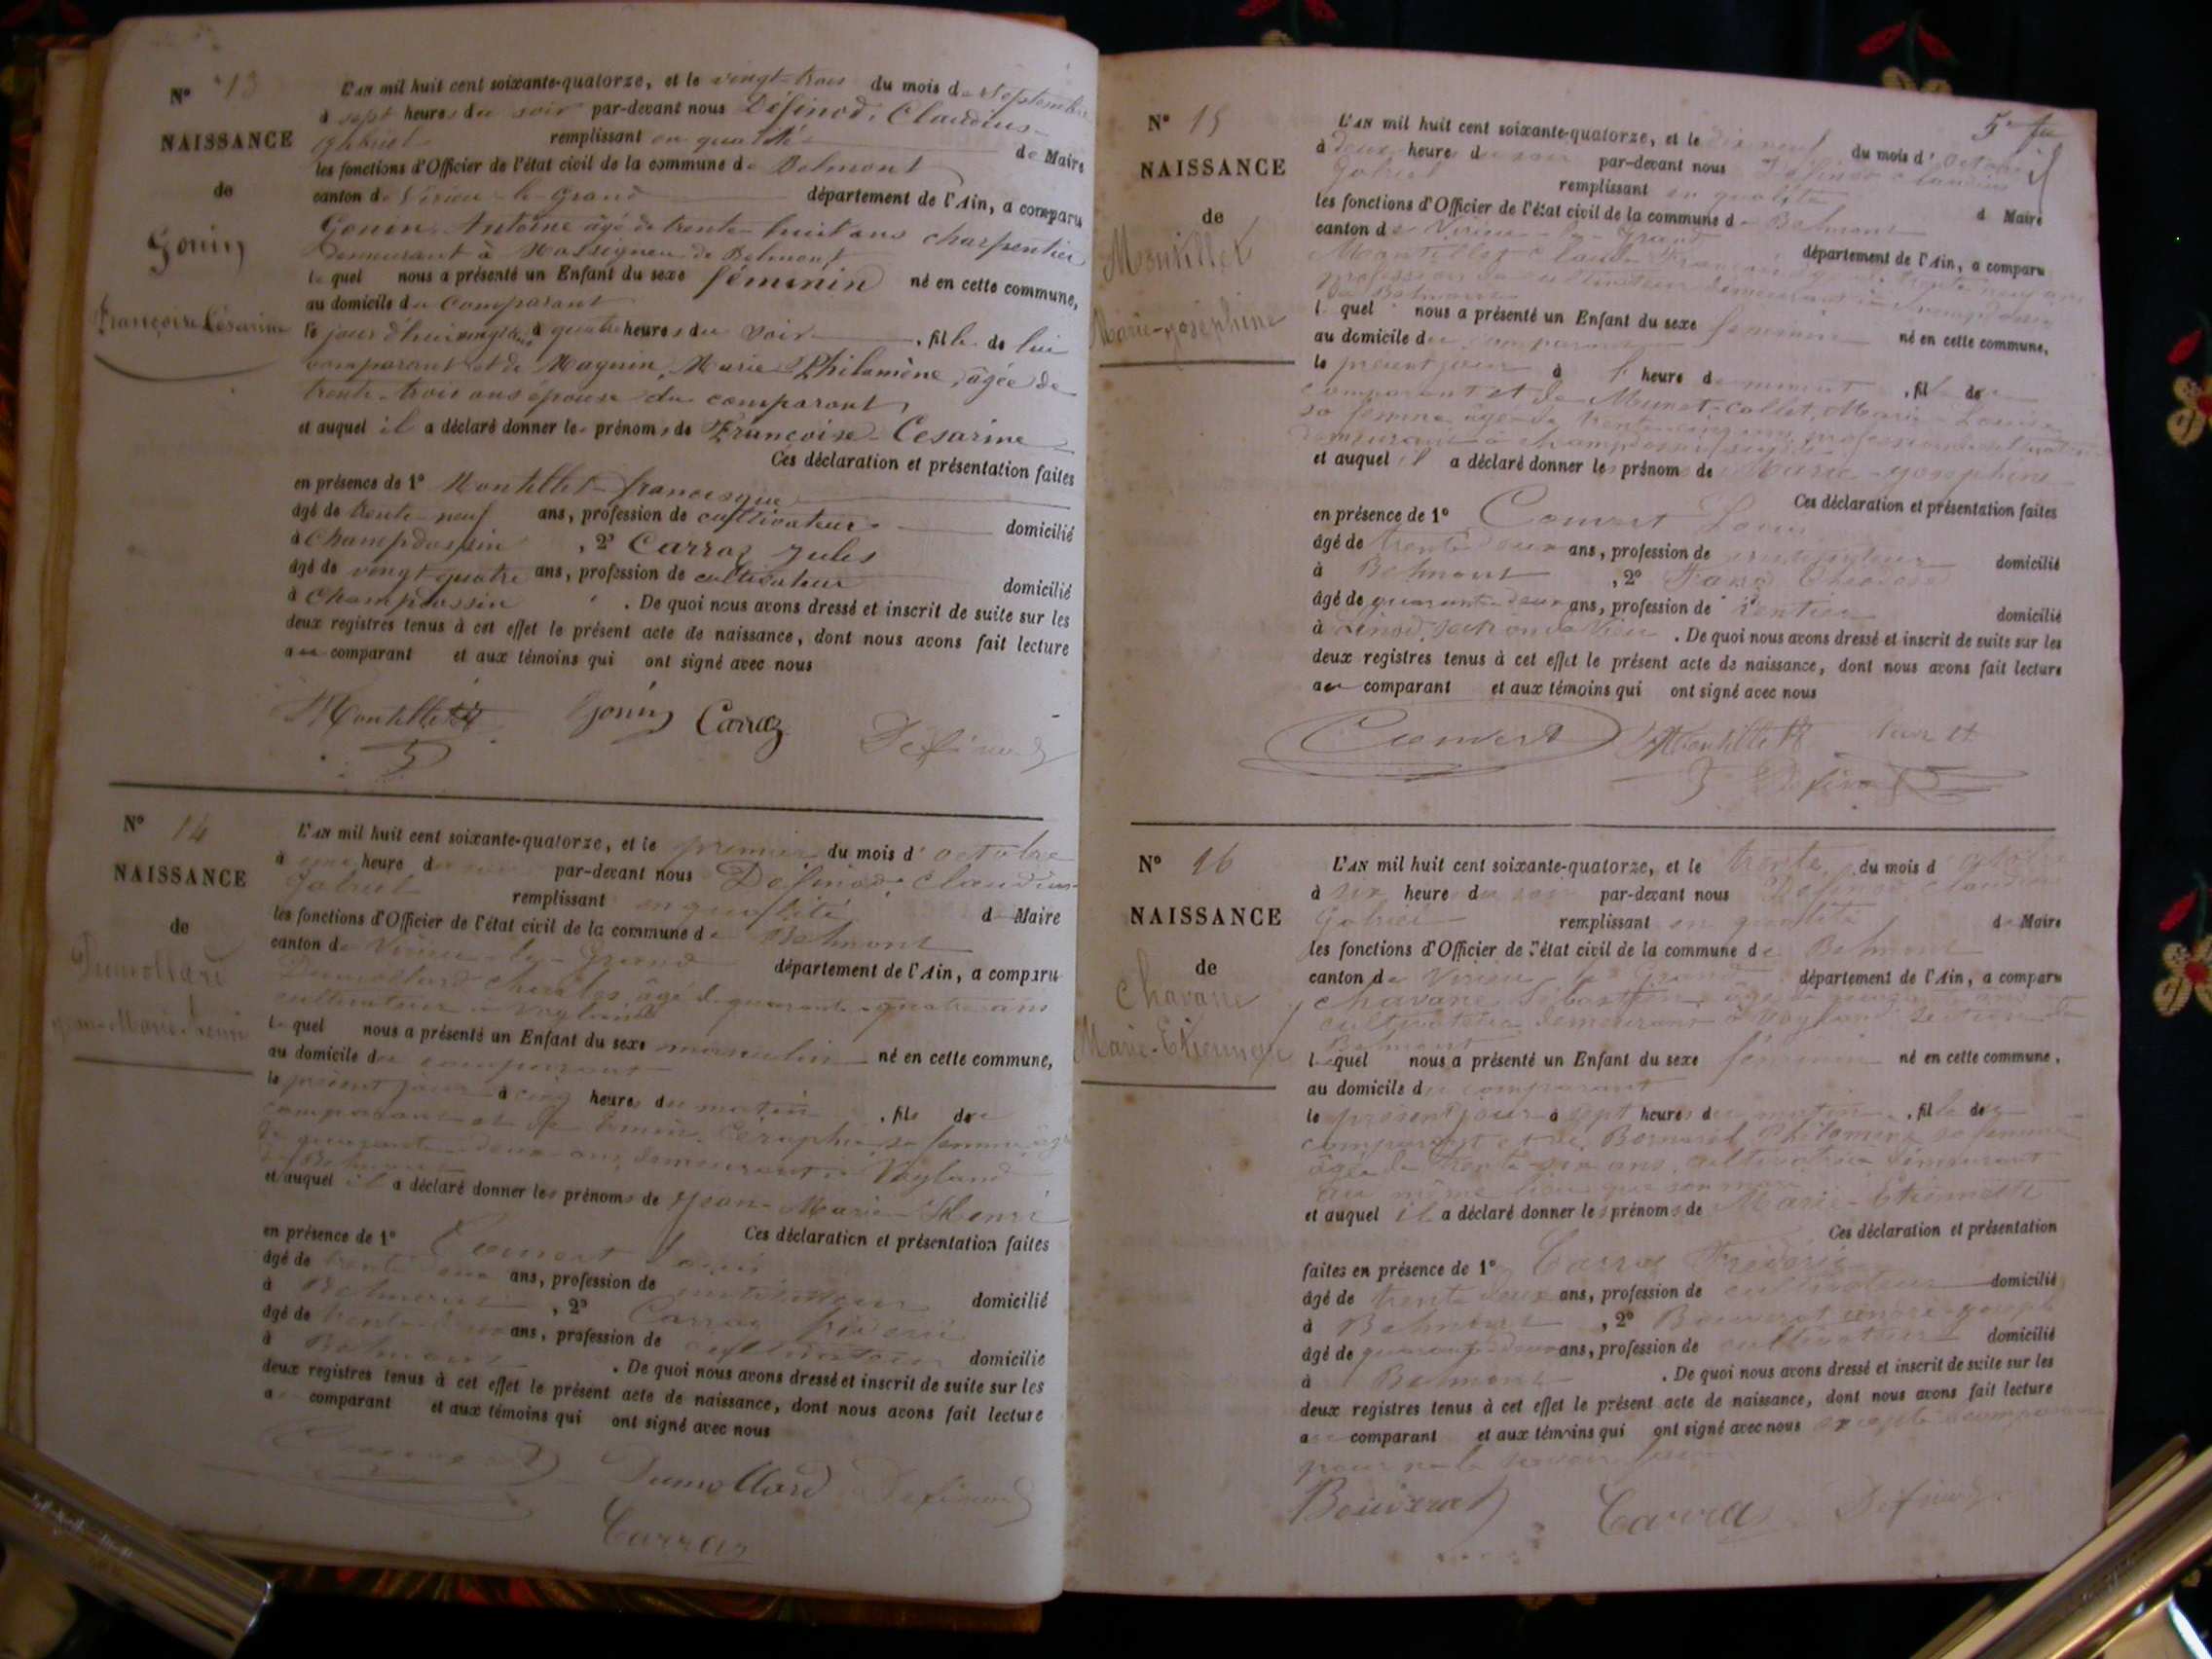 N° 13
NAISSANCE
de
Gonin
Françoise Césarine
L'AN mil huit cent soixante-quatorze, et le vingt-trois du mois de Septembre
à sept heures du soir par-devant nous Définod, Claudius-
Gabriel remplissant en qualité de Maire
les fonctions d'Officier de l'état civil de la commune de Belmont
canton de Virieu-le-Grand département de l'Ain, a comparu
Gonin Antoine âgé de trente-huit ans charpentier
demeurant à de Belmont
lequel nous a présenté un Enfant du sexe féminin né en cette commune,
au domicile du comparant
le jour d'hui à quatre heures du soir, fille de lui
comparant et de Magnin, Marie Philomène, âgée de
trente-trois ans épouse du comparant
et auquel il a déclaré donner les prénoms de Françoise-Cesarine
Ces déclaration et présentation faites
en présence de 1° Montillet-francisque
âgé de trente-neuf ans, profession de cultivateur domicilié
à Champdossin, 2° Carraz Jules
âgé de vingt-quatre ans, profession de cultivateur domicilié
à Champdossin. De quoi nous avons dressé et inscrit de suite sur les
deux registres tenus à cet effet le présent acte de naissance, dont nous avons fait lecture
au comparant et aux témoins qui ont signé avec nous
Montillet Gonin Carraz Définod
N° 14
NAISSANCE
de
Dumollard
Jean-Marie-Henri
L'AN mil huit cent soixante-quatorze, et le premier du mois d'octobre
à une heure du soir par-devant nous Definod Claudius-
Gabriel remplissant en qualité d Maire
les fonctions d'Officier de l'état civil de la commune de Belmont
canton de Virieu-le-Grand département de l'Ain, a comparu
Dumollard Charles, âgé de quarante-quatre ans
cultivateur à Vogland
lequel nous a présenté un Enfant du sexe masculin né en cette commune,
au domicile du comparant
le présent jour à cinq heures du matin, fils de
comparant et de Séraphie sa femme âgée
de quarante-deux ans demeurant à Vogland
de Belmont
et auquel il a déclaré donner les prénoms de Jean-Marie-Henri
Ces déclaration et présentation faites
en présence de 1° Convert Louis
âgé de trente deux ans, profession de domicilié
à Belmont, 2° Carraz Frédéric
âgé de trente ans, profession de cultivateur domicilié
à Belmont. De quoi nous avons dressé et inscrit de suite sur les
deux registres tenus à cet effet le présent acte de naissance, dont nous avons fait lecture
a comparant et aux témoins qui ont signé avec nous
Dumollard Definod
Carraz
5
N° 15
NAISSANCE
de
Montillet
Marie-josephine
L'AN mil huit cent soixante-quatorze, et le dix neuf du mois d'Octobre
à deux heures du soir par-devant nous Definod Claudius
Gabriel remplissant en qualité d Maire
les fonctions d'Officier de l'état civil de la commune de Belmont
canton de Virieu-le-Grand département de l'Ain, a comparu
Montillet Claude trente neuf ans
profession de cultivateur demeurant à
de Belmont
lequel nous a présenté un Enfant du sexe feminin né en cette commune,
au domicile du comparant
le présent jour à heure de, fille de
comparant et de Munet-Collet, Marie Louise
sa femme âgée de trente-cinq ans, profession
demeurant à Champdossin
et auquel il a déclaré donner les prénoms de Marie-Josephine
Ces déclaration et présentation faites
en présence de 1° Convert Louis
âgé de trente deux ans, profession de domicilié
à Belmont, 2°
âgé de quarante-deux ans, profession de rentier domicilié
à. De quoi nous avons dressé et inscrit de suite sur les
deux registres tenus à cet effet le présent acte de naissance, dont nous avons fait lecture
au comparant et aux témoins qui ont signé avec nous
Convert Montillet
Definod
N° 16
NAISSANCE
de
Chavane
Marie-Etiennette
L'AN mil huit cent soixante-quatorze, et le trente du mois d octobre
à six heure du soir par-devant nous Definod Claudius
Gabriel remplissant en qualité d Maire
les fonctions d'Officier de l'état civil de la commune de Belmont
canton de Virieu le grand département de l'Ain, a comparu
Chavane Sébastien âgé de ans
cultivateur demeurant à Vogland section de
Belmont
lequel nous a présenté un Enfant du sexe féminin né en cette commune,
au domicile du comparant
le présent jour à sept heures du matin, fille de
comparant et de Bernard Philomène sa femme
âgée de trente-six ans, cultivatrice demeurant
au même lieu que son mari
et auquel il a déclaré donner les prénoms de Marie-Etiennette
Ces déclaration et présentation
faites en présence de 1° Carraz Frédéric
âgé de trente deux ans, profession de cultivateur domicilié
à Belmont, 2° Bouverat joseph
âgé de quarante-deux ans, profession de cultivateur domicilié
à Belmont. De quoi nous avons dressé et inscrit de suite sur les
deux registres tenus à cet effet le présent acte de naissance, dont nous avons fait lecture
a comparant et aux témoins qui ont signé avec nous excepté le comparant
pour ne le savoir faire
Bouverat Carraz Definod